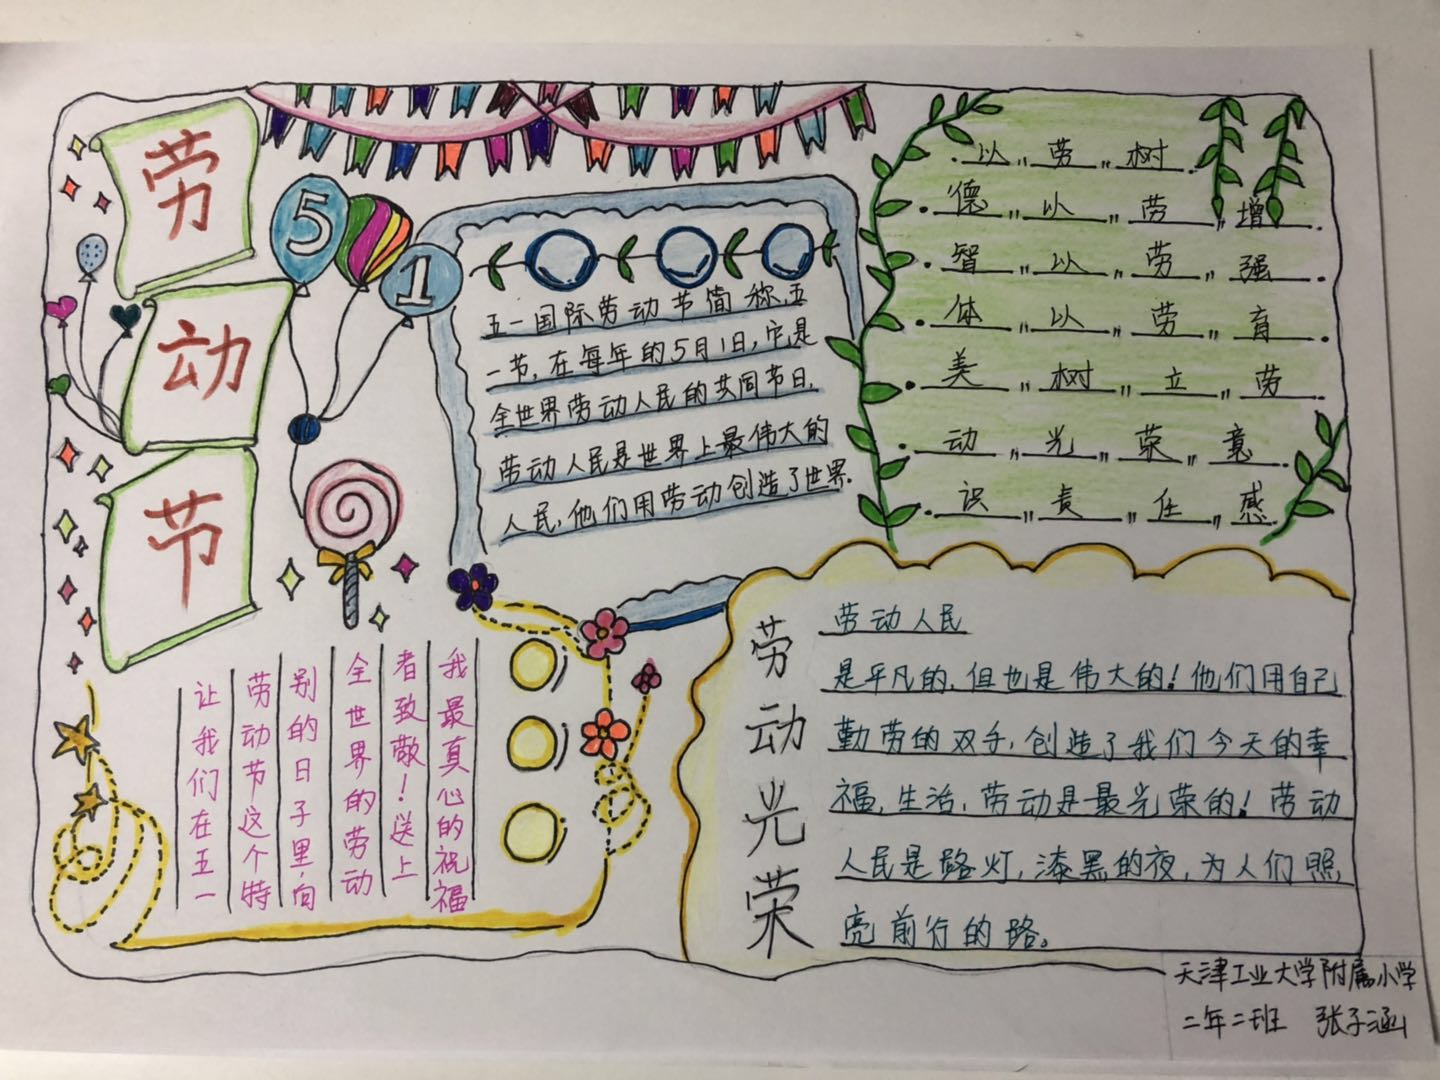 劳
动
节
5
1
五一国际劳动节简称五
一节,在每年的5月1日,它是
全世界劳动人民的共同节日.
劳动人民是世界上最伟大的
人民,他们用劳动创造了世界.
以劳树
德以劳增
智以劳强
体以劳育
美树立劳
动光荣意
识责任感
我最真心的祝福
者致敬!送上
全世界的劳动
别的日子里,向
劳动节这个特
让我们在五一
劳动光荣
劳动人民
是平凡的,但也是伟大的!他们用自己
勤劳的双手,创造了我们今天的幸
福,生活,劳动是最光荣的!劳动
人民是路灯,漆黑的夜,为人们照
亮前行的路。
天津工业大学附属小学
二年二班 张子涵